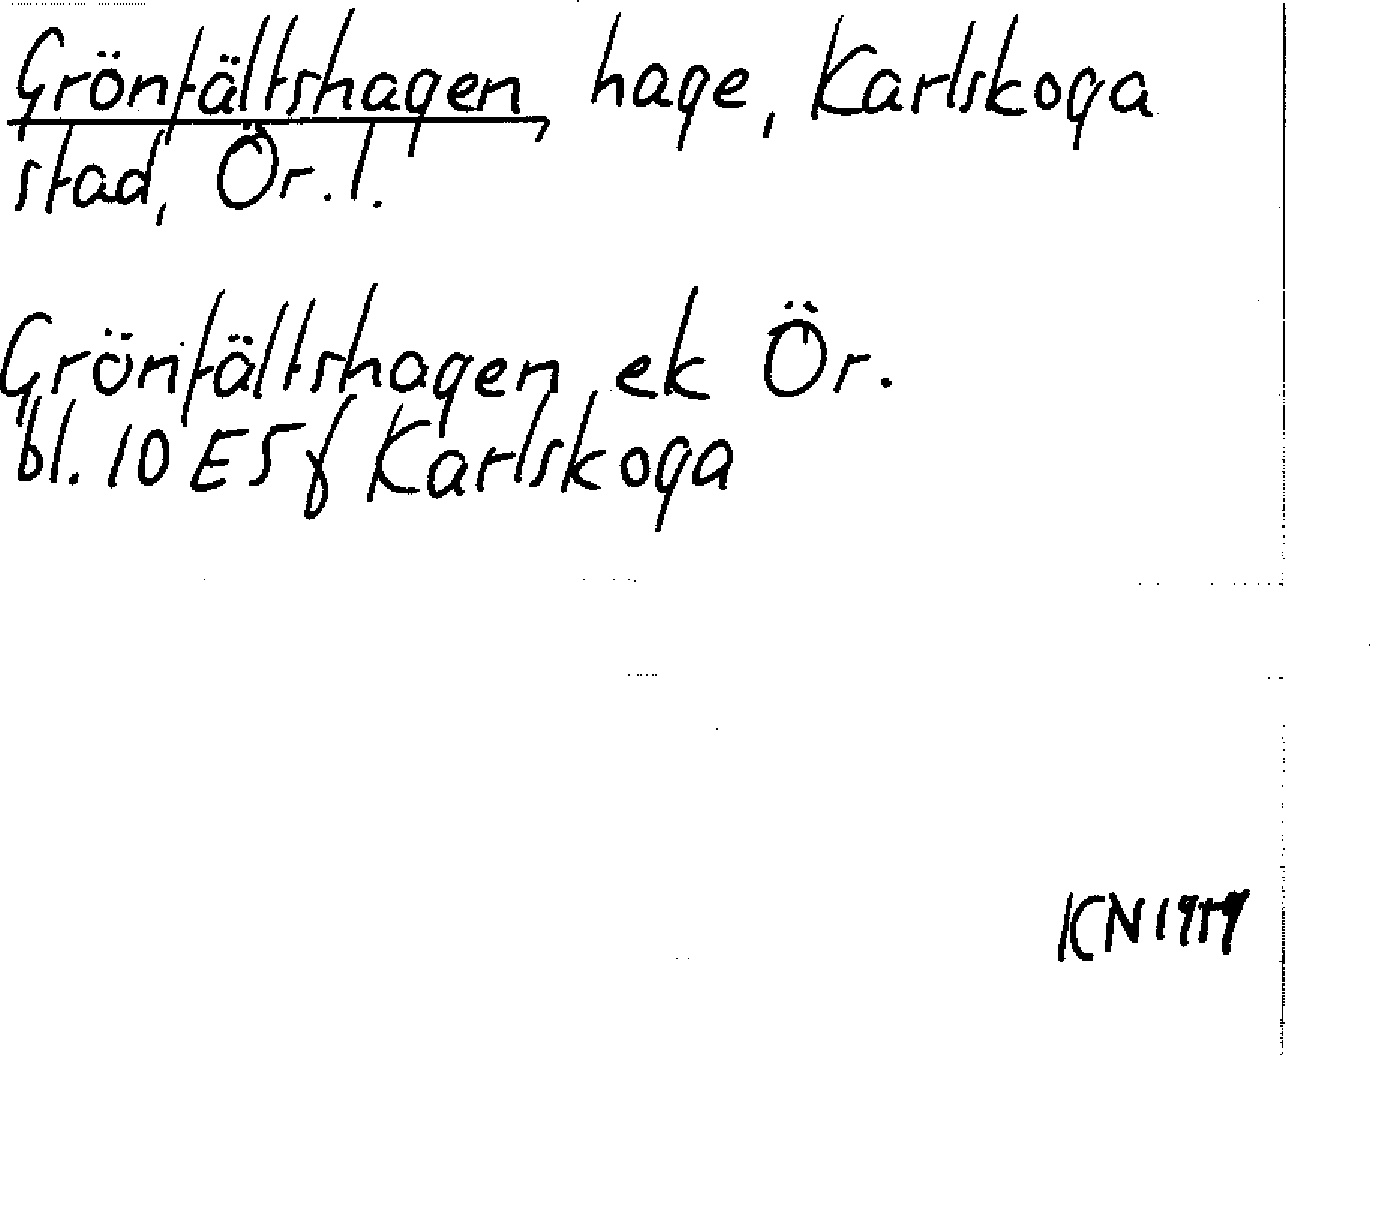 Grönfältshagen, hage, Karlskoga
stad, Ör. l.
Grönfältshagen ek Ör.
bl. 10 E 5 f Karlskoga